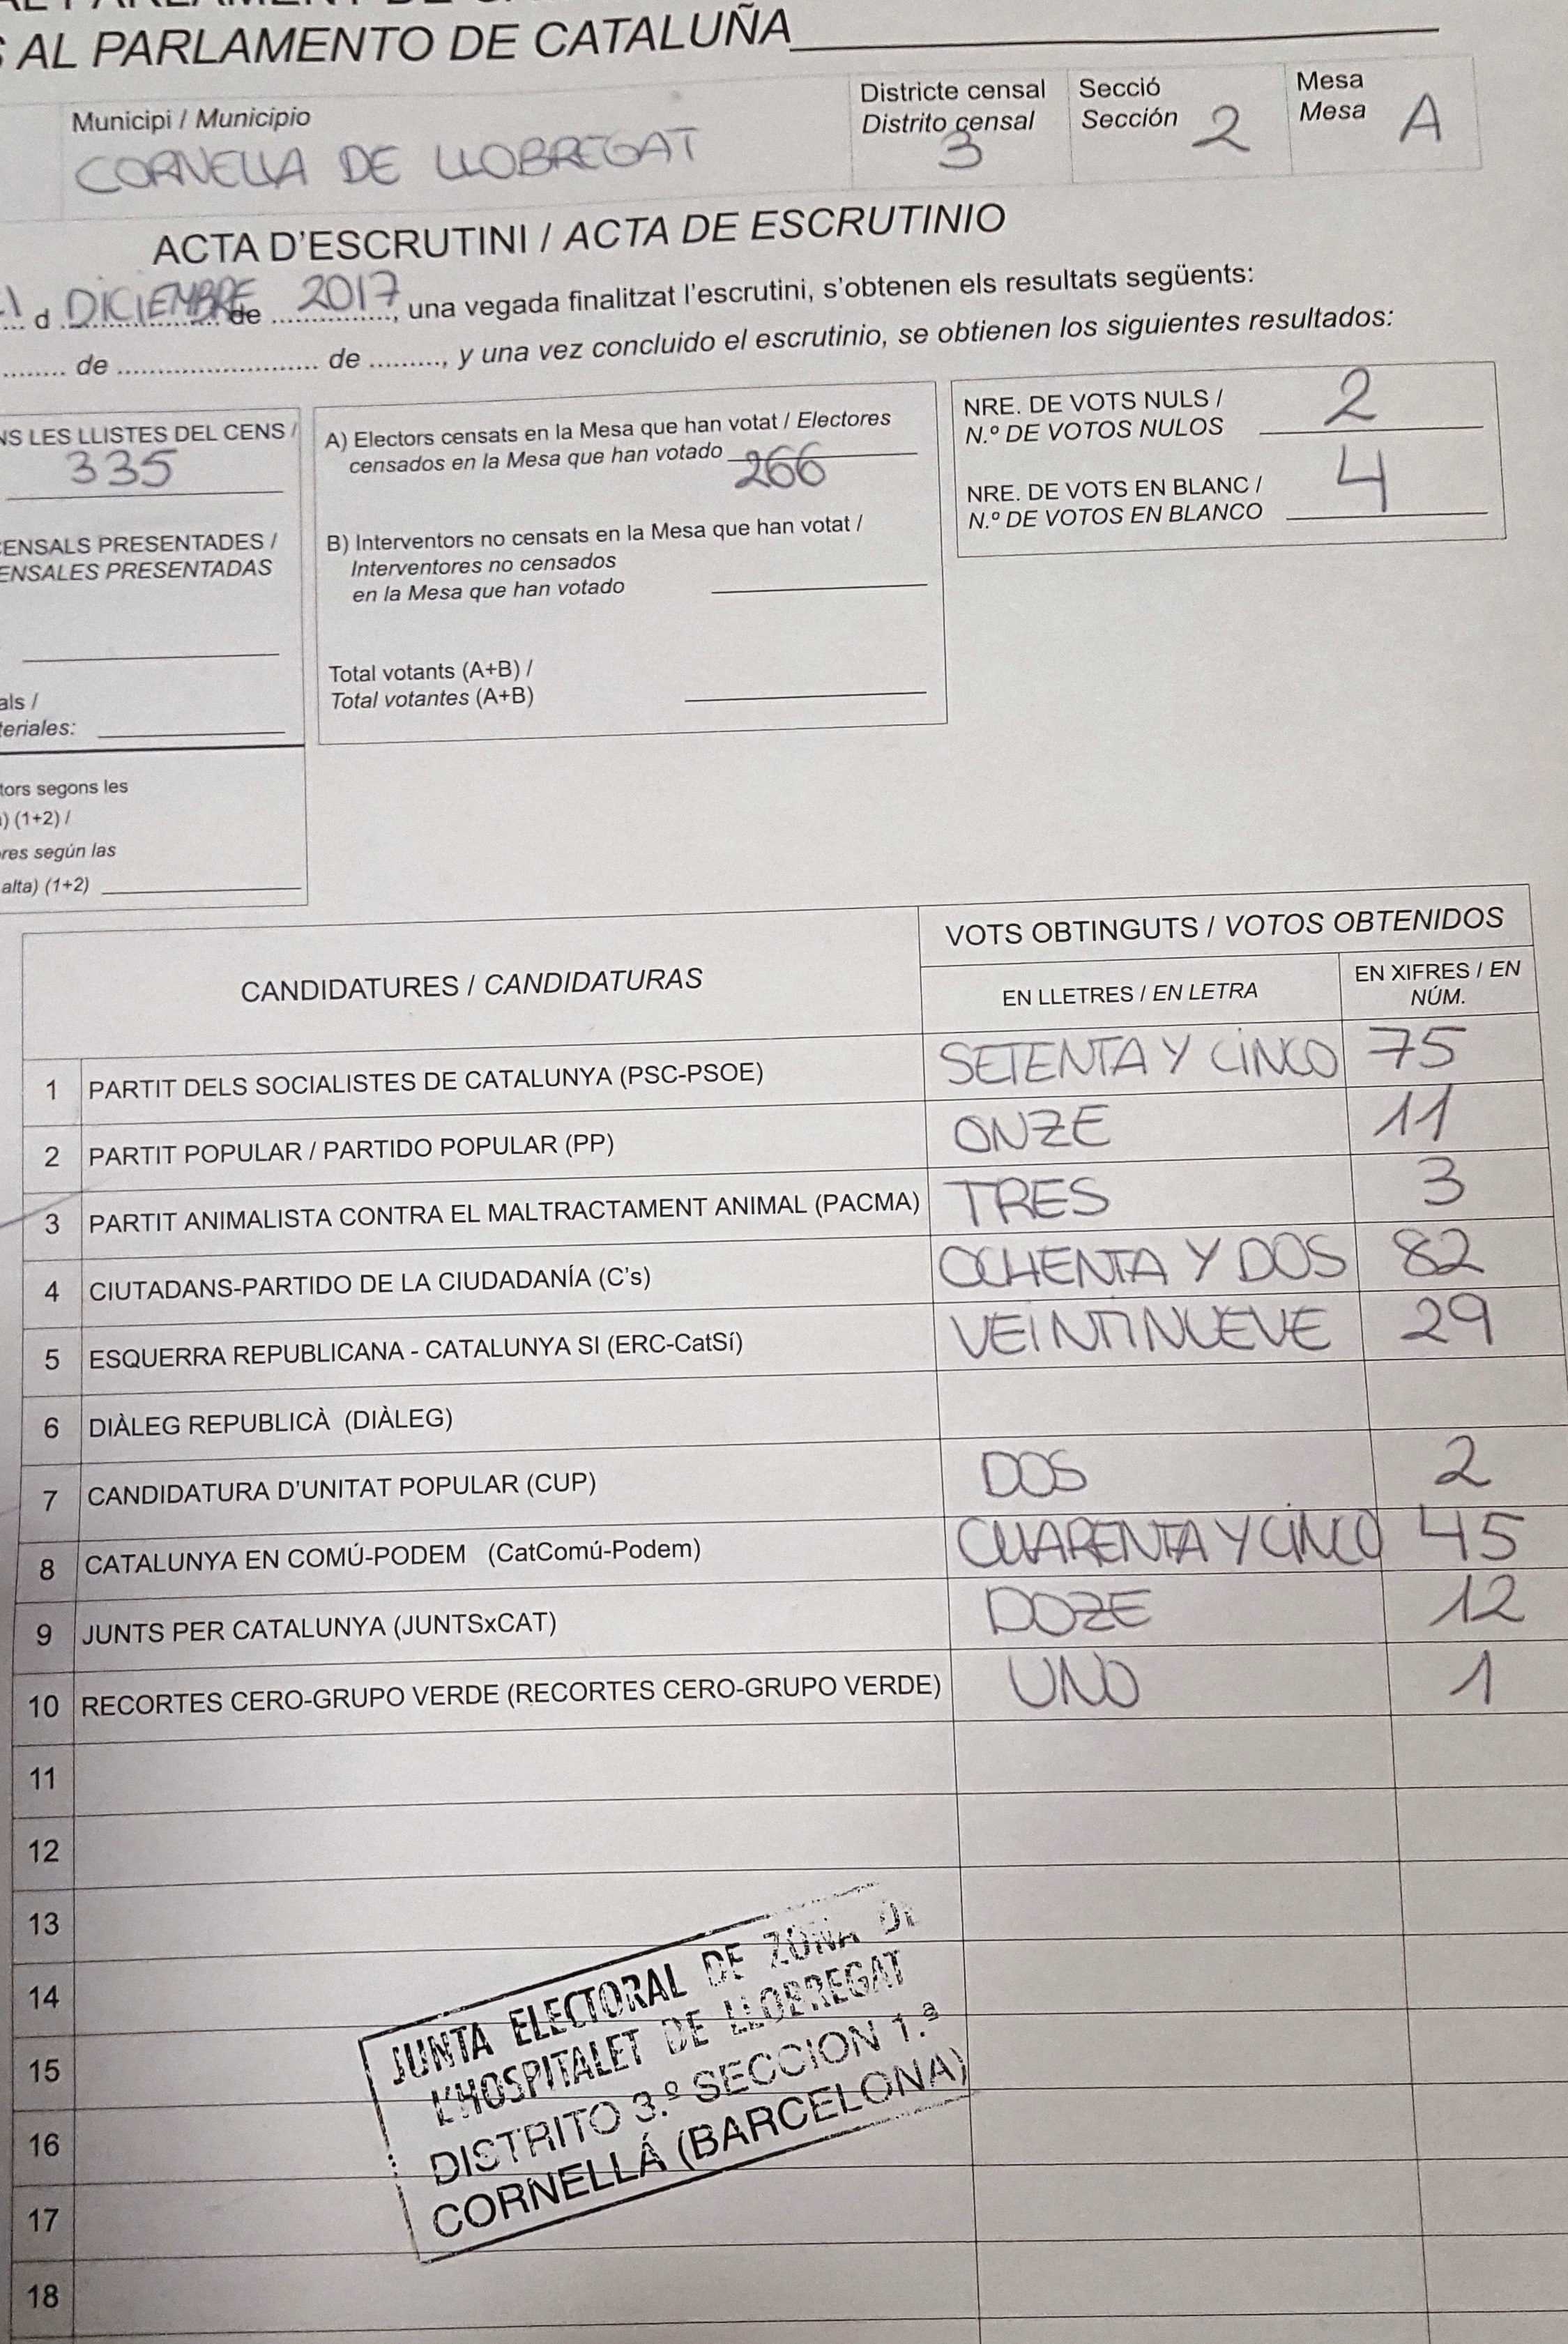 S AL PARLAMENTO DE CATALUÑA
Municipi / Municipio
CORNELLA DE LLOBREGAT
Districte censal
Distrito censal
3
Secció
Sección 2
Mesa
Mesa A
ACTA D'ESCRUTINI / ACTA DE ESCRUTINIO
d DICIEMBRE de 2017, una vegada finalitzat l'escrutini, s'obtenen els resultats següents:
de de, y una vez concluido el escrutinio, se obtienen los siguientes resultados:
NS LES LLISTES DEL CENS /
335
ENSALS PRESENTADES /
ENSALES PRESENTADAS
als /
teriales:
tors segons les
) (1+2) /
res según las
alta) (1+2)
A) Electors censats en la Mesa que han votat / Electores
censados en la Mesa que han votado 266
B) Interventors no censats en la Mesa que han votat /
Interventores no censados
en la Mesa que han votado
Total votants (A+B) /
Total votantes (A+B)
NRE. DE VOTS NULS /
N.º DE VOTOS NULOS 2
NRE. DE VOTS EN BLANC /
N.º DE VOTOS EN BLANCO 4
CANDIDATURES / CANDIDATURAS
VOTS OBTINGUTS / VOTOS OBTENIDOS
EN LLETRES / EN LETRA
EN XIFRES / EN
NÚM.
1 PARTIT DELS SOCIALISTES DE CATALUNYA (PSC-PSOE) SETENTA Y CINCO 75
2 PARTIT POPULAR / PARTIDO POPULAR (PP) ONZE 11
3 PARTIT ANIMALISTA CONTRA EL MALTRACTAMENT ANIMAL (PACMA) TRES 3
4 CIUTADANS-PARTIDO DE LA CIUDADANÍA (C's) OCHENTA Y DOS 82
5 ESQUERRA REPUBLICANA - CATALUNYA SI (ERC-CatSí) VEINTINUEVE 29
6 DIÀLEG REPUBLICÀ (DIÀLEG)
7 CANDIDATURA D'UNITAT POPULAR (CUP) DOS 2
8 CATALUNYA EN COMÚ-PODEM (CatComú-Podem) CUARENTA Y CINCO 45
9 JUNTS PER CATALUNYA (JUNTSxCAT) DOZE 12
10 RECORTES CERO-GRUPO VERDE (RECORTES CERO-GRUPO VERDE) UNO 1
11
12
13
14
15
16
17
18
JUNTA ELECTORAL DE ZONA DE
L'HOSPITALET DE LLOBREGAT
DISTRITO 3.º SECCION 1.ª
CORNELLÁ (BARCELONA)